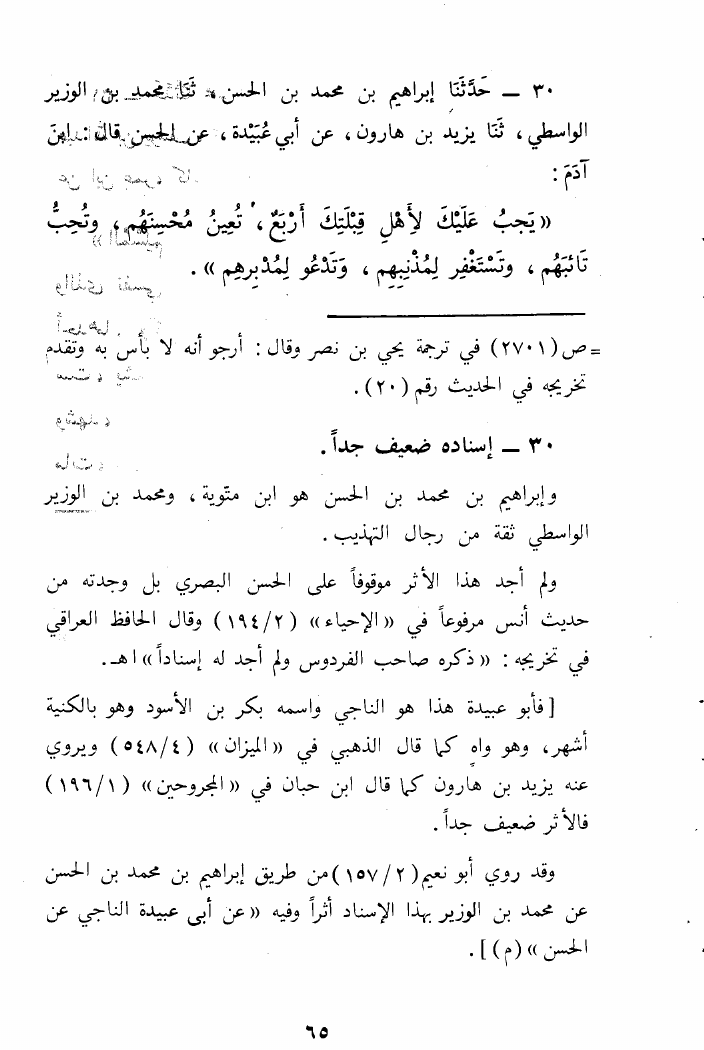 ٣٠ ــ حَدَّثَنَا إبراهيم بن محمد بن الحسن، ثَنَا محمد بن الوزير
الواسطي، ثَنَا يزيد بن هارون، عن أبي عُبَيْدة، عن الحسن قال: ابنَ
آدَمَ:
«يَجبُ عَلَيْكَ لأِهْلِ قِبْلَتِكَ أَرْبَعٌ، تُعِينُ مُحْسِنَهُم، وتُحِبُّ
تَائبَهُم، وتَسْتَغْفِر لِمُذْنِبِهِم، وَتَدْعُو لِمُدْبِرِهِم».
= ص (٢٧٠١) في ترجمة يحي بن نصر وقال: أرجو أنه لا بأس به وتقدم
تخريجه في الحديث رقم (٢٠).
٣٠ ــ إسناده ضعيف جداً.
وإبراهيم بن محمد بن الحسن هو ابن متّوية، ومحمد بن الوزير
الواسطي ثقة من رجال التهذيب.
ولم أجد هذا الأثر موقوفاً على الحسن البصري بل وجدته من
حديث أنس مرفوعاً في «الإحياء» (١٩٤/٢) وقال الحافظ العراقي
في تخريجه: «ذكره صاحب الفردوس ولم أجد له إسناداً» اهـ.
[فأبو عبيدة هذا هو الناجي واسمه بكر بن الأسود وهو بالكنية
أشهر، وهو واهٍ كما قال الذهبي في «الميزان» (٥٤٨/٤) ويروي
عنه يزيد بن هارون كما قال ابن حبان في «المجروحين» (١٩٦/١)
فالأثر ضعيف جداً.
وقد روي أبو نعيم (١٥٧/٢) من طريق إبراهيم بن محمد بن الحسن
عن محمد بن الوزير بهذا الإسناد أثراً وفيه «عن أبى عبيدة الناجي عن
الحسن» (م)].
٦٥